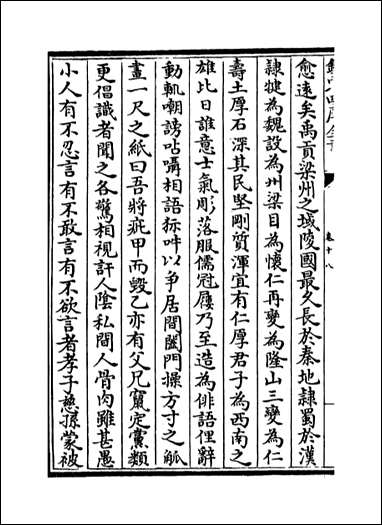 欽定四庫全書
卷十八
愈遠矣禹貢梁州之域陵國最久長於秦地隷蜀於漢
隷犍為魏設為州梁目為懷仁再變為隆山三變為仁
壽土厚石深其民堅剛質渾宜有仁厚君子為西南之
雄比日誰意士氣彫落服儒冠屨乃至造為俳語俚辭
動軏嘲謗呫囁相語標吽以争居間闔門操方寸之觚
畫一尺之紙曰吾將疵甲而毁乙亦有父兄竄定黨類
更倡識者聞之各驚相視訐人陰私間人骨肉雖甚愚
小人有不忍言有不敢言有不欲言者孝子慈孫蒙被